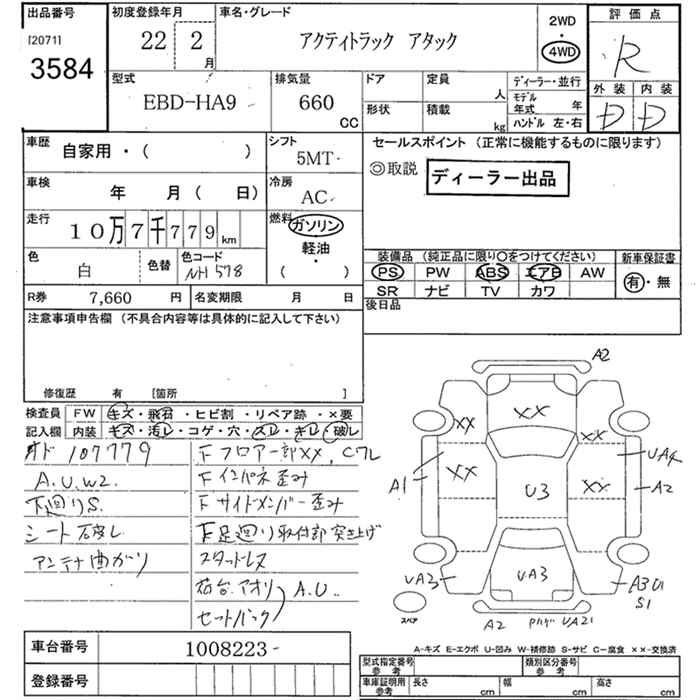 出品番号
[2071]
3584
初度登録年月
22 2 月
車名・グレード
アクティトラック アタック
2WD
4WD
評価点
R
外装 内装
D D
型式
EBD-HA9
排気量
660 CC
ドア
定員 人
形状
積載 kg
ディーラー・並行
モデル年式 年
ハンドル 左・右
車歴
自家用・( )
シフト
5MT
車検
年 月( 日)
冷房
AC
走行
10万7千779 km
燃料
ガソリン
軽油・
( )
色
白
色替
色コード
NH578
R券 7,660 円
名変期限 月 日
セールスポイント (正常に機能するものに限ります)
◎取説
ディーラー出品
装備品 (純正品に限り○をつけてください)
PS PW ABS エアB AW
SR ナビ TV カワ
新車保証書
有・無
後日品
注意事項申告欄 (不具合内容等は具体的に記入して下さい)
修復歴 有 [箇所 ]
検査員記入欄
FW キズ・飛石・ヒビ割・リペア跡・×要
内装 キズ・汚レ・コゲ・穴・スレ・キレ・破レ
オド 107779
A.U.W2.
下廻りS.
シート破レ
アンテナ曲がり
Fフロア一部XX, Cワレ
Fインパネ歪み
Fサイドメンバー歪み
F足廻り取付部突き上げ
スタッドレス
荷台.アオリ A.U..
セートバック
A2
XX
XX
XX
UA4
A1
XX
U3
XX
A2
UA3
UA3
A3U1
S1
スペア
A2
UA21
A-キズ E-エクボ U-凹み W-補修跡 S-サビ C-腐食 ××-交換済
車台番号 1008223-
登録番号
型式指定番号 参考
類別区分番号 参考
車庫証明用 参考
長さ cm
幅 cm
高さ cm